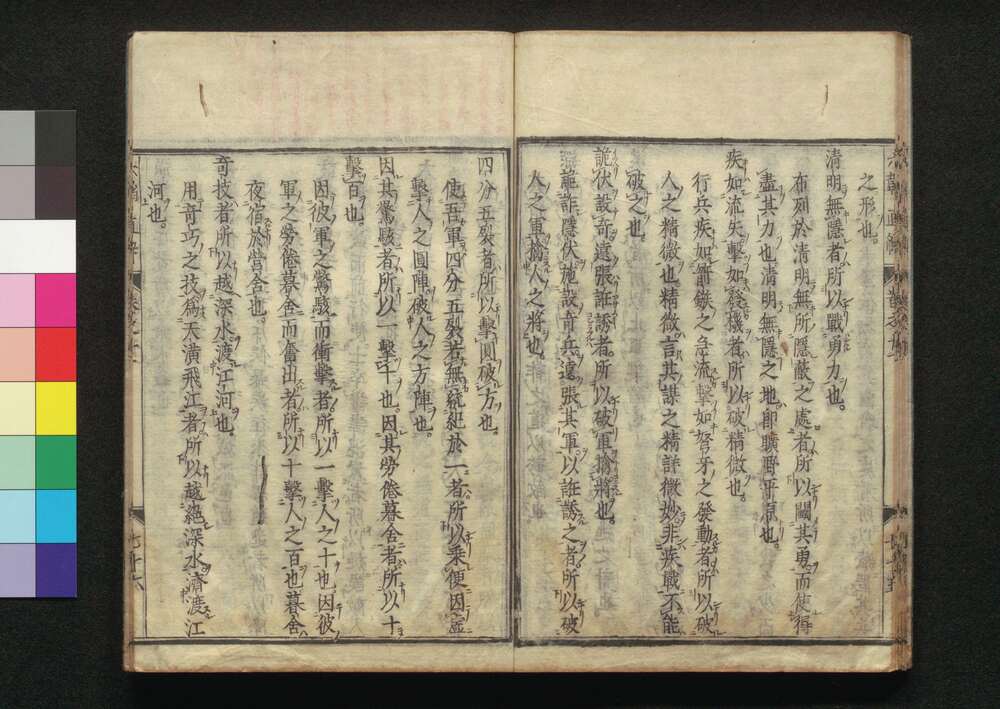 之形也
清明無隱者所以戰勇力也
布列於清明無所隱蔽之處者所以鬪其勇而使得
盡其力也清明無隱之地卽曠野平原也
疾如流矢擊如發機者所以破精微也
行兵疾如箭鏃之急流擊如弩牙之發動者所以破
人之精微也精微言其謀之精詳微妙非疾戰不能
破之也
詭伏設奇遠張誑誘者所以破軍擒將也
詭詐隱伏施設奇兵遠張其軍以誑誘之者所以破
人之軍擒人之將也
四分五裂者所以擊圓破方也
使吾軍四分五裂若無統紀於一者所以乘便因
擊人之圓陣破人之方陣也
因其驚駭者所以一擊十也因其勞倦暮舍者所以十
擊百也
因彼軍之驚駭而衝擊者所以一擊人之十也因彼
軍之勞倦暮舍而奮出者所以十擊人之百也暮舍
夜宿於營舍也
奇技者所以越深水渡江河也
用奇巧之技爲天潢飛江者所以越絕深水濟渡江
河也